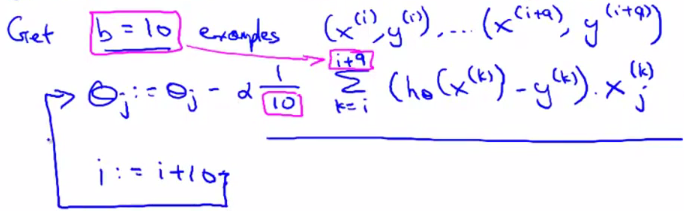 Get b = 10 examples (x^{(i)}, y^{(i)}), ... (x^{(i+9)}, y^{(i+9)})
θ_j := θ_j - α \frac{1}{10} \sum_{k=i}^{i+9} (h_θ(x^{(k)}) - y^{(k)}) · x_j^{(k)}
i := i+10;